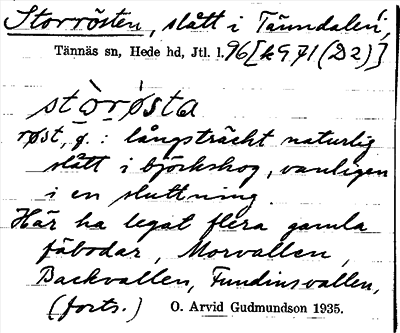 Storrösten, slått i Tänndalen,
Tännäs sn, Hede hd, Jtl. l. 96 [k 971 (D2)]
stòrø̀sta
røst, f. : långsträckt naturlig
slått i björkskog, vanligen
i en sluttning.
Här ha legat flera gamla
fäbodar, Morvallen,
Backvallen, Fundinsvallen,
(forts.) O. Arvid Gudmundson 1935.